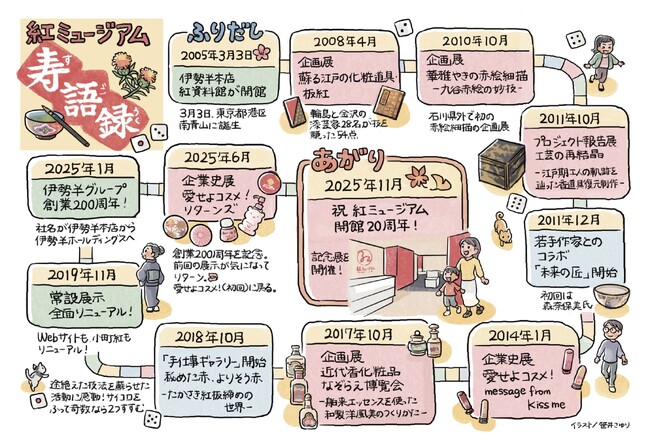 紅ミュージアム
寿語録
す
ご
ろく
ふりだし
2005年3月3日
伊勢半本店
紅資料館が開館
3月3日、東京都港区
南青山に誕生
2008年4月
企画展
蘇る江戸の化粧道具・
板紅
輪島と金沢の
漆芸家28名が技を
競った54点
2010年10月
企画展
華雅やきの赤絵細描
―九谷赤絵の妙技―
石川県外で初の
赤絵細描の企画展
2011年10月
プロジェクト報告展
工芸の再結晶
―江戸期工人の軌跡を
辿った香道具復元制作―
2011年12月
若手作家との
コラボ
「未来の匠」開始
初回は
森奈保美氏
2014年1月
企業史展
愛せよコスメ!
message from
Kiss me
2017年10月
企画展
近代香化粧品
なぞらえ博覧会
―舶来エッセンスを使った
和製洋風美のつくりかた―
2018年10月
「手仕事ギャラリー」開始
秘めた赤、よりそう赤
―たかさき紅板締めの
世界―
途絶えた技法を蘇らせた
活動に感動!サイコロを
ふって奇数なら2つすすむ。
2019年11月
常設展示
全面リニューアル!
Webサイトも、小町紅も
リニューアル!
2025年1月
伊勢半グループ
創業200周年!
社名が伊勢半本店から
伊勢半ホールディングスへ
2025年6月
企業史展
愛せよコスメ!
リターンズ
創業200周年を記念。
前回の展示が気になって
リターン。
愛せよコスメ!(初回)に戻る。
あがり
2025年11月
祝 紅ミュージアム
開館20周年!
記念展を
開催!
イラスト/菅井さゆり